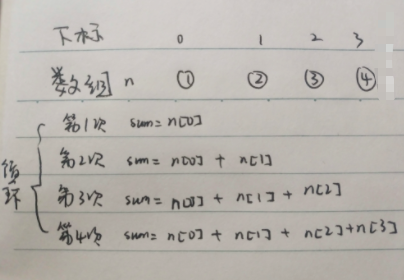 下标 0 1 2 3
数组 n ① ② ③ ④
循环
第1次 sum= n[0]
第2次 sum= n[0] + n[1]
第3次 sum= n[0] + n[1] + n[2]
第4次 sum= n[0] + n[1] + n[2]+n[3]